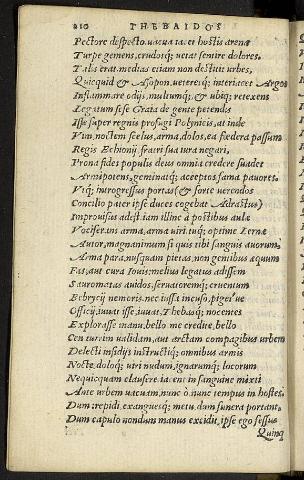 210 THEBAIDOS
Pectore despecto, uacua iacet hostis arena
Turpe gemens, crudosq; uetat sentire dolores.
Talis erat. medias etiam non destitit urbes,
Quicquid & Asopon, ueteresq; interiacet Argos
Inflammare odijs, multumq; & ubiq; retexens
Legatum sese Graia de gente petendis
Isse super regnis profugi Polynicis, at inde
Vim, noctem scelus, arma, dolos, ea foedera passum
Regis Echionij. fratri sua iura negari,
Prona fides populis deus omnia credere suadet
Armipotens, geminatq; acceptos fama pauores.
Vtq; introgressus portas (& forte uerendos
Concilio pater ipse duces cogebat Adrastus)
Improuisus adest, iam illinc à postibus aulæ
Vociferans arma, arma uiri, tuq; optime Lernæ
Autor, magnanimum si quis tibi sanguis auorum,
Arma para, nusquam pietas, non gentibus æquum
Fas, aut cura Iouis: melius legatus adissem
Sauromatas auidos, seruatoremq; cruentum
Bebrycij nemoris. nec iussa incuso, piget' ue
Officij, iuuat isse, iuuat. Thebasq; nocentes
Explorasse manu, bello me credite, bello
Ceu turrim ualidam, aut arctam compagibus urbem
Delecti insidijs instructiq; omnibus armis
Nocte doloq; uiri nudum, ignarumq; locorum
Nequicquam clausere. iacent in sanguine mixti
Ante urbem uacuam, nunc ô nunc tempus in hostes,
Dum trepidi, exanguesq; metu, dum funera portant,
Dum capulo nondum manus excidit, ipse ego fessus
Quinq